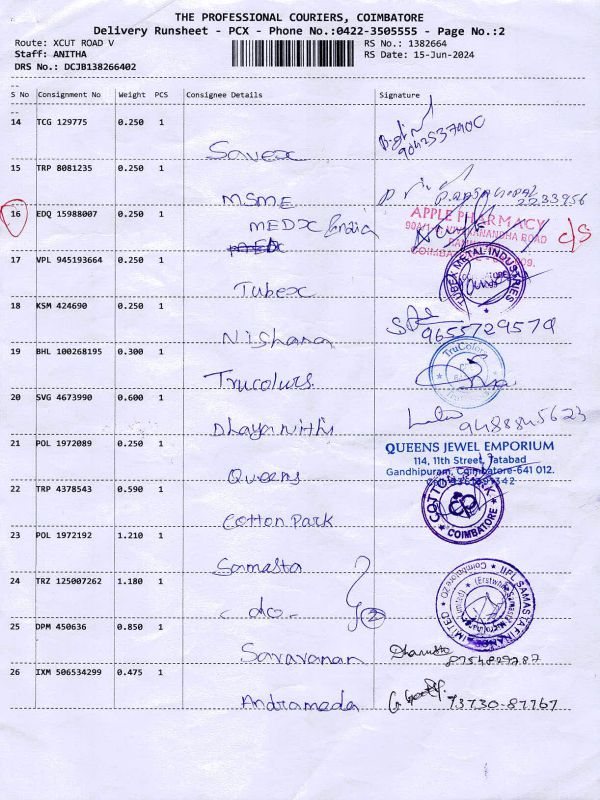 THE PROFESSIONAL COURIERS, COIMBATORE
Delivery Runsheet - PCX - Phone No.:0422-3505555 - Page No.:2
Route: XCUT ROAD V
RS No.: 1382664
Staff: ANITHA
RS Date: 15-Jun-2024
DRS No.: DCJB138266402
S No Consignment No Weight PCS Consignee Details Signature
14 TCG 129775 0.250 1
Savex
15 TRP 8081235 0.250 1
MSME
2233956
16 EDQ 15988007 0.250 1
MEDX India
APPLE PHARMACY
C/S
17 VPL 945193664 0.250 1
Tubex
TUBEX METAL INDUSTRIES
18 KSM 424690 0.250 1
Nishana
9655729579
19 BHL 100268195 0.300 1
Trucolurs
TruColors
20 SVG 4673990 0.600 1
Dhayanithi
9488845623
21 POL 1972089 0.250 1
Queens
QUEENS JEWEL EMPORIUM
114, 11th Street, Tatabad
Gandhipuram, Coimbatore-641 012.
22 TRP 4378543 0.590 1
Cotton Park
COTTON PARK
COIMBATORE
23 POL 1972192 1.210 1
Samasta
24 TRZ 125007262 1.180 1
- do -
2
IIFL SAMASTA FINANCE LIMITED
25 DPM 450636 0.850 1
Saravanan
26 IXM 506534299 0.475 1
Andrameda
73730-87767